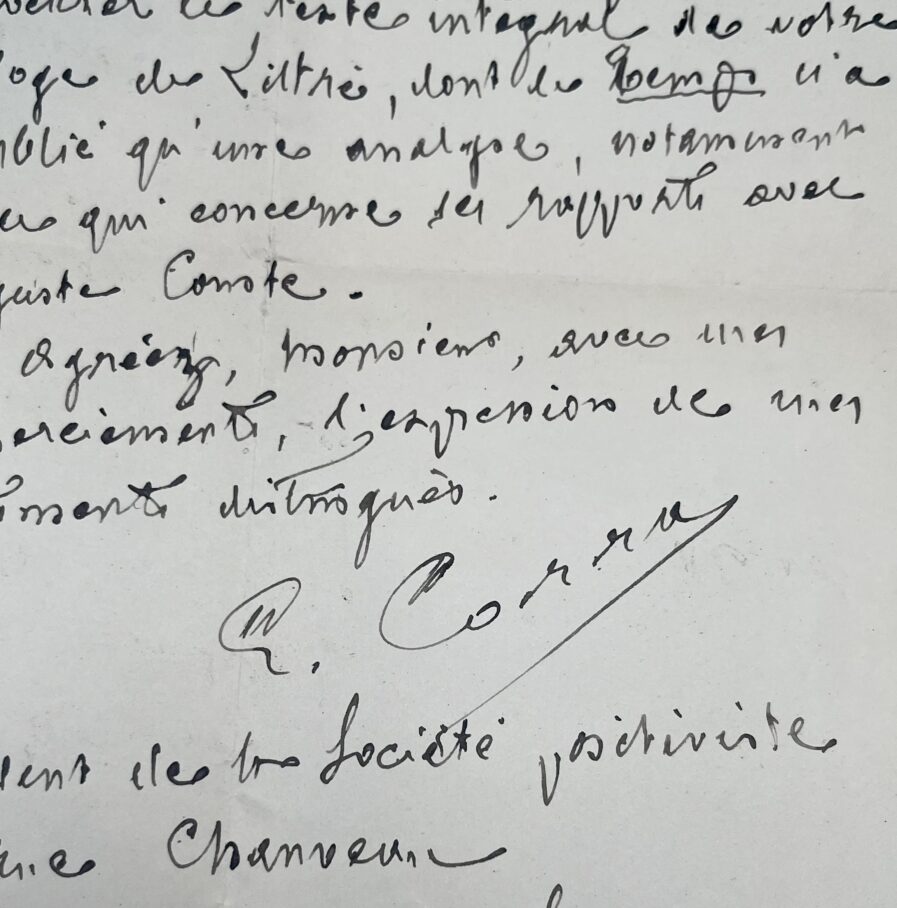 le texte intégral de votre
loge de Littré, dont le Temps n'a
ublié qu'une analyse, notamment
ce qui concerne ses rapports avec
guste Comte.
Agréez, Monsieur, avec mes
erciements, l'expression de mes
timents distingués.
E. Corra
dent de la Société positiviste
rue Chanveau